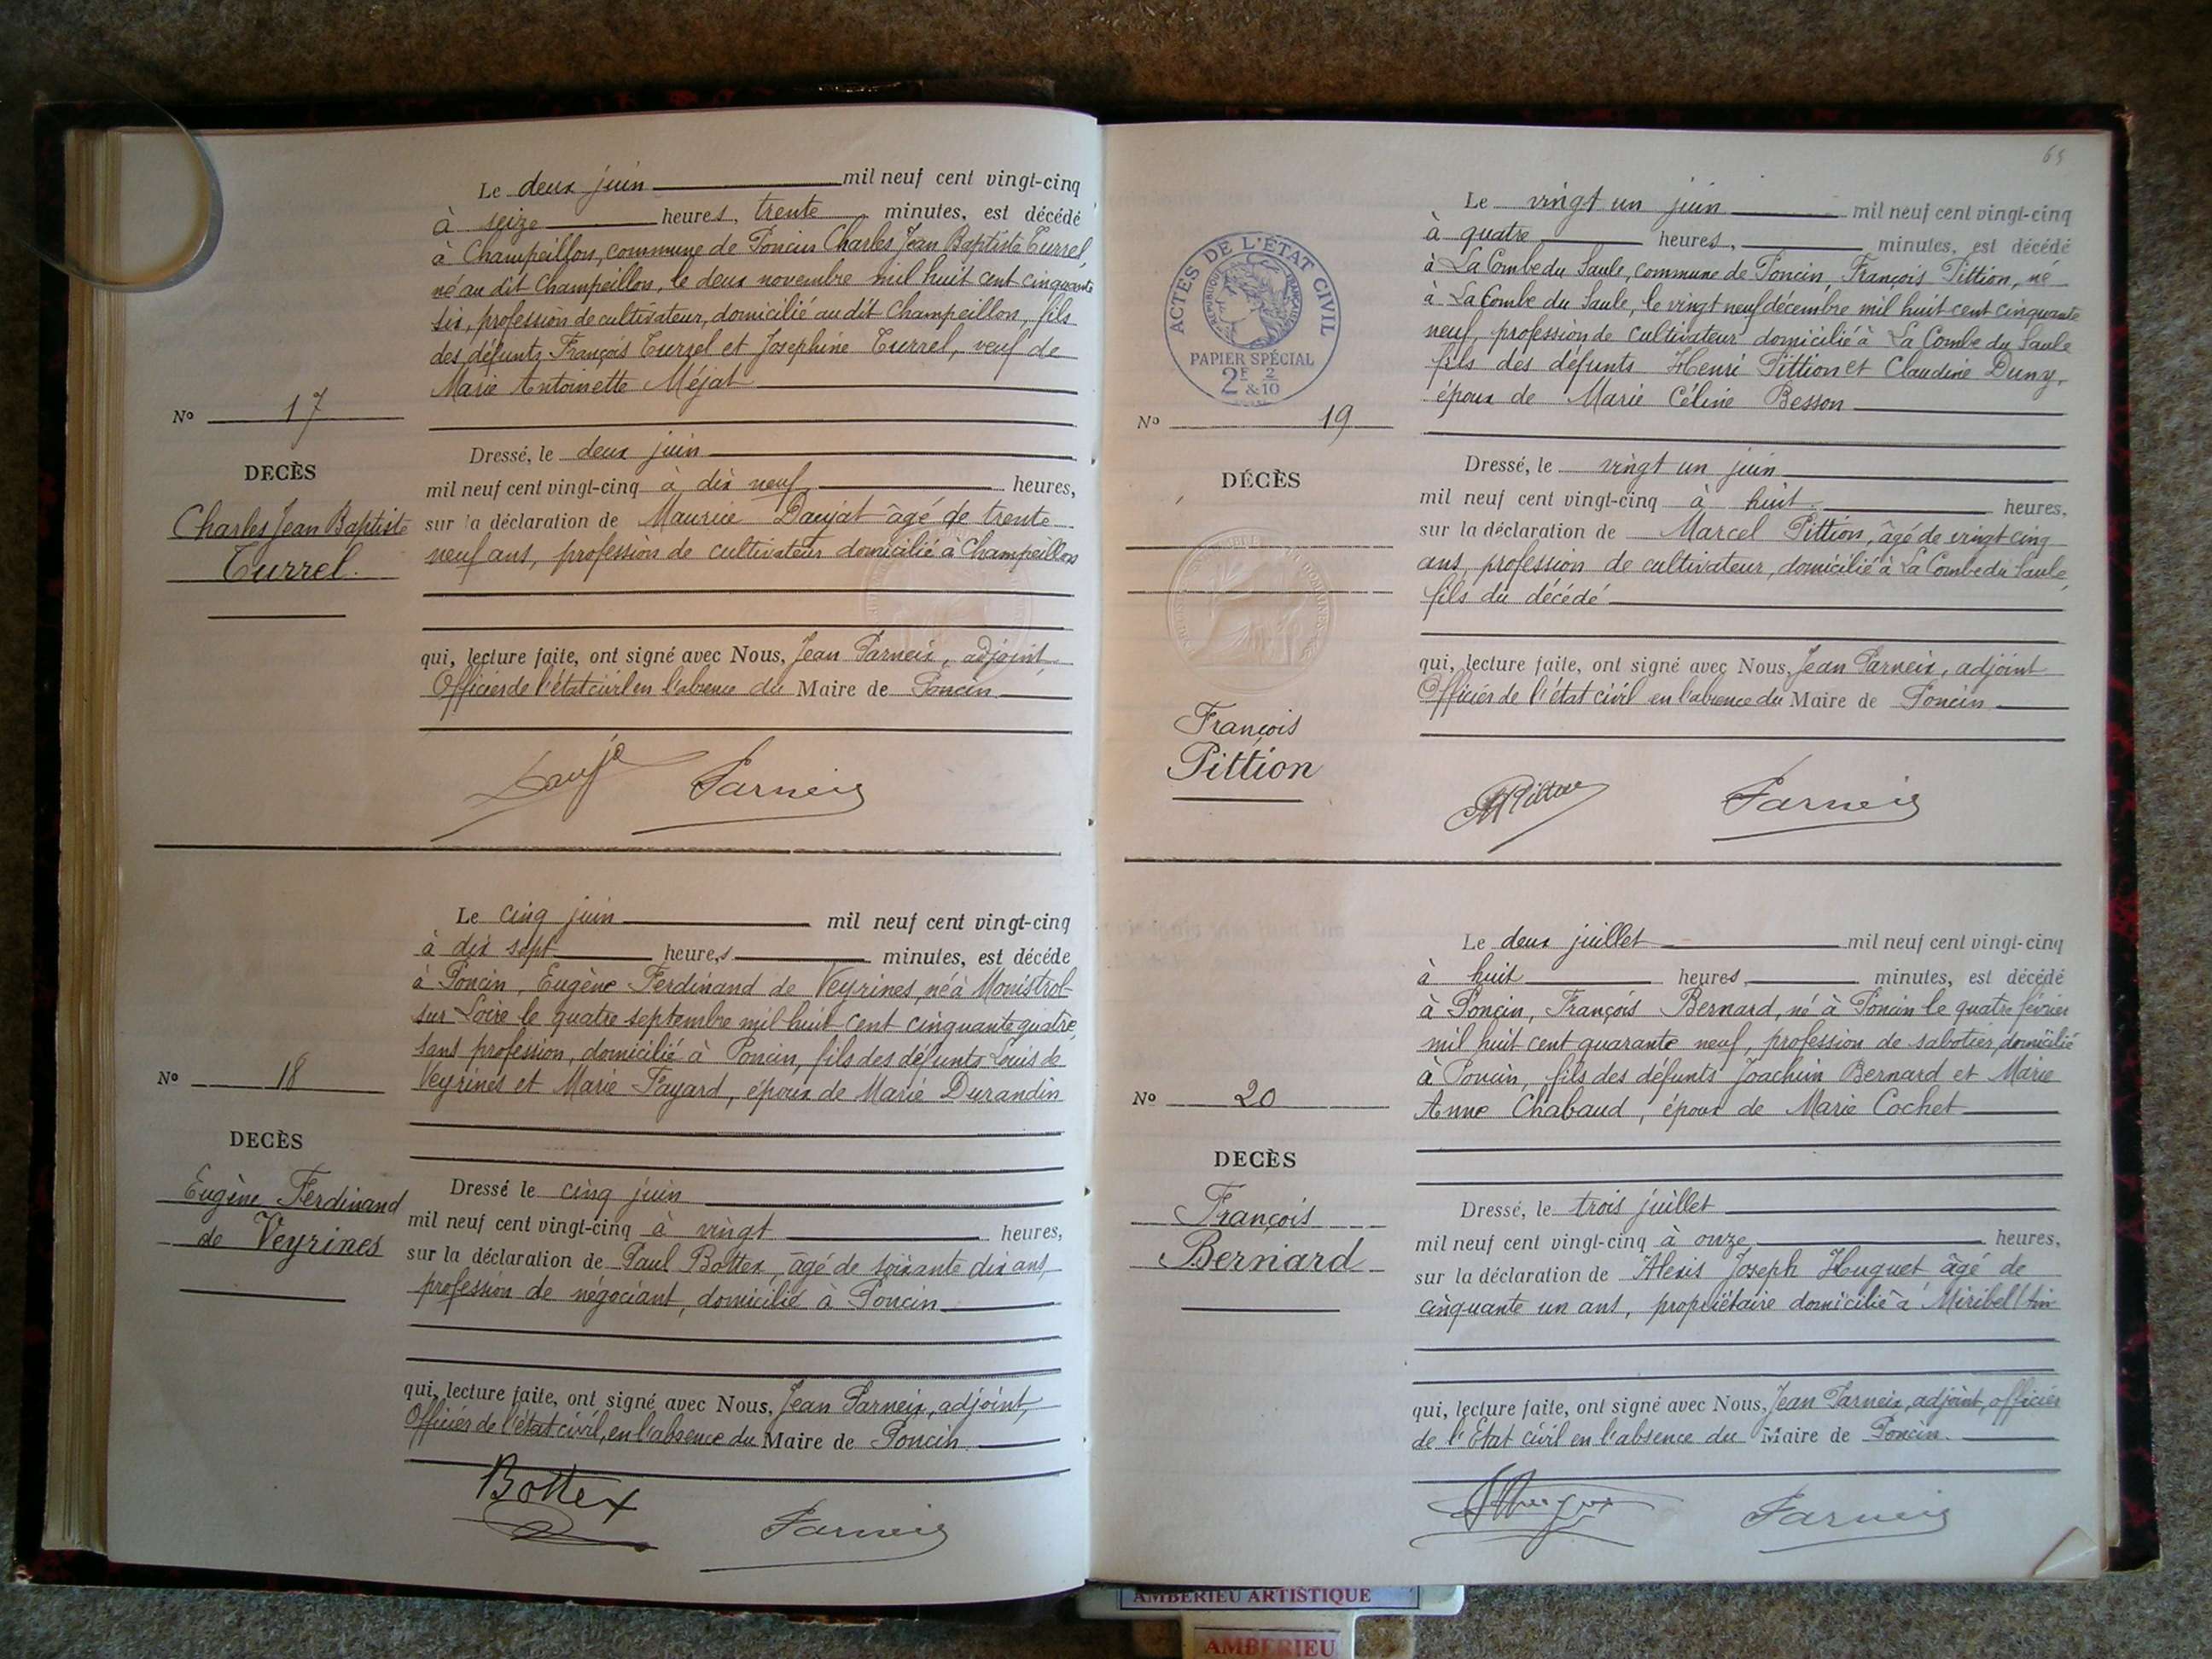 Le deux juin mil neuf cent vingt-cinq
à seize heures, trente minutes, est décédé
à Champeillon, commune de Poncin Charles Jean Baptiste Turrel,
né au dit Champeillon, le deux novembre mil huit cent cinquante
six, profession de cultivateur, domicilié au dit Champeillon, fils
des défunts François Turrel et Josephine Turrel, veuf de
Marie Antoinette Méjat
No 17
DECÈS
Charles Jean Baptiste
Turrel.
Dressé, le deux juin
mil neuf cent vingt-cinq à dix neuf heures,
sur la déclaration de Maurice Daujat âgé de trente
neuf ans, profession de cultivateur domicilié à Champeillon
qui, lecture faite, ont signé avec Nous, Jean Parneix, adjoint,
Officier de l'état civil en l'absence du Maire de Poncin
Parneix
Le cinq juin mil neuf cent vingt-cinq
à dix sept heures minutes, est décédé
à Poncin, Eugène Ferdinand de Veyrines, né à Monistrol-
sur Loire le quatre septembre mil huit cent cinquante quatre,
sans profession, domicilié à Poncin, fils des défunts Louis de
Veyrines et Marie Fayard, époux de Marie Durandin
No 18
DECÈS
Eugène Ferdinand
de Veyrines
Dressé le cinq juin
mil neuf cent vingt-cinq à vingt heures,
sur la déclaration de Paul Bottex, âgé de soixante dix ans,
profession de négociant, domicilié à Poncin
qui, lecture faite, ont signé avec Nous, Jean Parneix, adjoint,
Officier de l'état civil, en l'absence du Maire de Poncin
Bottex Parneix
65
Le vingt un juin mil neuf cent vingt-cinq
à quatre heures, minutes, est décédé
à La Combe du Saule, commune de Poncin, François Pittion, né
à La Combe du Saule, le vingt neuf décembre mil huit cent cinquante
neuf, profession de cultivateur domicilié à La Combe du Saule
fils des défunts Henri Pittion et Claudine Duny,
époux de Marie Céline Besson
ACTES DE L'ÉTAT CIVIL
RÉPUBLIQUE FRANÇAISE
PAPIER SPÉCIAL
2F 2
&10
No 19
DÉCÈS
François
Pittion
Dressé, le vingt un juin
mil neuf cent vingt-cinq à huit heures,
sur la déclaration de Marcel Pittion, âgé de vingt cinq
ans, profession de cultivateur, domicilié à La Combe du Saule,
fils du décédé
qui, lecture faite, ont signé avec Nous, Jean Parneix, adjoint
Officier de l'état civil en l'absence du Maire de Poncin
Parneix
Le deux juillet mil neuf cent vingt-cinq
à huit heures, minutes, est décédé
à Poncin, François Bernard, né à Poncin le quatre février
mil huit cent quarante neuf, profession de sabotier, domicilié
à Poncin, fils des défunts Joachim Bernard et Marie
Anne Chabaud, époux de Marie Cochet
No 20
DECÈS
François
Bernard
Dressé, le trois juillet
mil neuf cent vingt-cinq à onze heures,
sur la déclaration de Alexis Joseph Huguet âgé de
cinquante un ans, propriétaire domicilié à Miribel (Ain
qui, lecture faite, ont signé avec Nous, Jean Parneix, adjoint, officier
de l'Etat civil en l'absence du Maire de Poncin.
Parneix
AMBERIEU ARTISTIQUE
AMBERIEU